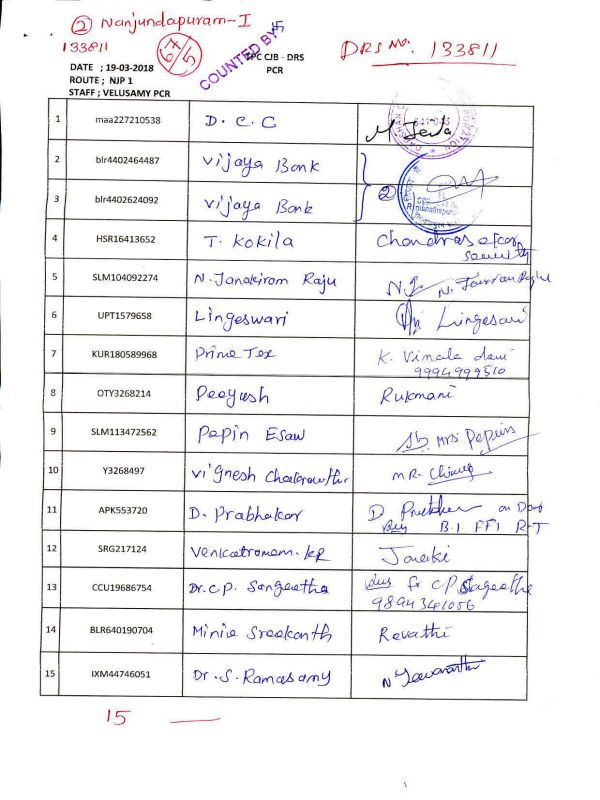 ② Nanjundapuram-I
133811
67/5
COUNTED BY
TPC CJB - DRS
PCR
DRS No. 133811
DATE ; 19-03-2018
ROUTE ; NJP 1
STAFF ; VELUSAMY PCR
1 maa227210538 D.C.C
641 045
2 blr4402464487 Vijaya Bank
3 blr4402624092 Vijaya Bank ②
4 HSR16413652 T. Kokila Chandrasekar
5 SLM104092274 N. Janakiram Raju
6 UPT1579658 Lingeswari Lingesari
7 KUR180589968 Prime Tex K. Vimala devi
9994999510
8 OTY3268214 Peeyush Rukmani
9 SLM113472562 Pepin Esaw Mrs Pepins
10 Y3268497 Vignesh MR.
11 APK553720 D. Prabhakar D
B.I FFI R-T
12 SRG217124 Venkatramam. KR Janaki
13 CCU19686754 Dr. C.P. Sangeetha
9894341056
14 BLR640190704 Minie Sreekanth Revathi
15 IXM44746051 Dr. S. Ramasamy
15 —